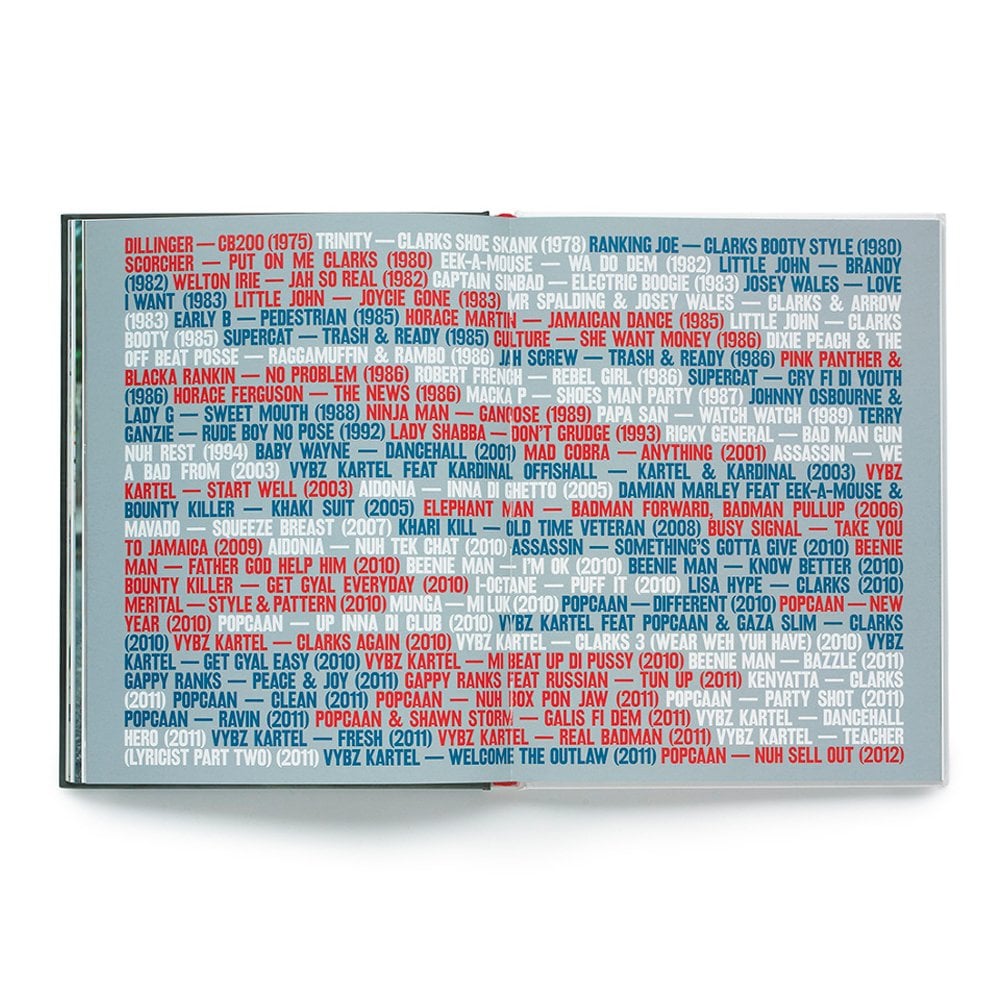 DILLINGER — CB200 (1975) TRINITY — CLARKS SHOE SKANK (1978) RANKING JOE — CLARKS BOOTY STYLE (1980)
SCORCHER — PUT ON ME CLARKS (1980) EEK-A-MOUSE — WA DO DEM (1982) LITTLE JOHN — BRANDY
(1982) WELTON IRIE — JAH SO REAL (1982) CAPTAIN SINBAD — ELECTRIC BOOGIE (1983) JOSEY WALES — LOVE
I WANT (1983) LITTLE JOHN — JOYCIE GONE (1983) MR SPALDING & JOSEY WALES — CLARKS & ARROW
(1983) EARLY B — PEDESTRIAN (1985) HORACE MARTIN — JAMAICAN DANCE (1985) LITTLE JOHN — CLARKS
BOOTY (1985) SUPERCAT — TRASH & READY (1985) CULTURE — SHE WANT MONEY (1986) DIXIE PEACH & THE
OFF BEAT POSSE — RAGGAMUFFIN & RAMBO (1986) JAH SCREW — TRASH & READY (1986) PINK PANTHER &
BLACKA RANKIN — NO PROBLEM (1986) ROBERT FRENCH — REBEL GIRL (1986) SUPERCAT — CRY FI DI YOUTH
(1986) HORACE FERGUSON — THE NEWS (1986) MACKA P — SHOES MAN PARTY (1987) JOHNNY OSBOURNE &
LADY G — SWEET MOUTH (1988) NINJA MAN — GANGOSE (1989) PAPA SAN — WATCH WATCH (1989) TERRY
GANZIE — RUDE BOY NO POSE (1992) LADY SHABBA — DON'T GRUDGE (1993) RICKY GENERAL — BAD MAN GUN
NUH REST (1994) BABY WAYNE — DANCEHALL (2001) MAD COBRA — ANYTHING (2001) ASSASSIN — WE
A BAD FROM (2003) VYBZ KARTEL FEAT KARDINAL OFFISHALL — KARTEL & KARDINAL (2003) VYBZ
KARTEL — START WELL (2003) AIDONIA — INNA DI GHETTO (2005) DAMIAN MARLEY FEAT EEK-A-MOUSE &
BOUNTY KILLER — KHAKI SUIT (2005) ELEPHANT MAN — BADMAN FORWARD, BADMAN PULLUP (2006)
MAVADO — SQUEEZE BREAST (2007) KHARI KILL — OLD TIME VETERAN (2008) BUSY SIGNAL — TAKE YOU
TO JAMAICA (2009) AIDONIA — NUH TEK CHAT (2010) ASSASSIN — SOMETHING'S GOTTA GIVE (2010) BEENIE
MAN — FATHER GOD HELP HIM (2010) BEENIE MAN — I'M OK (2010) BEENIE MAN — KNOW BETTER (2010)
BOUNTY KILLER — GET GYAL EVERYDAY (2010) I-OCTANE — PUFF IT (2010) LISA HYPE — CLARKS (2010)
MERITAL — STYLE & PATTERN (2010) MUNGA — MI LUK (2010) POPCAAN — DIFFERENT (2010) POPCAAN — NEW
YEAR (2010) POPCAAN — UP INNA DI CLUB (2010) VYBZ KARTEL FEAT POPCAAN & GAZA SLIM — CLARKS
(2010) VYBZ KARTEL — CLARKS AGAIN (2010) VYBZ KARTEL — CLARKS 3 (WEAR WEH YUH HAVE) (2010) VYBZ
KARTEL — GET GYAL EASY (2010) VYBZ KARTEL — MI BEAT UP DI PUSSY (2010) BEENIE MAN — BAZZLE (2011)
GAPPY RANKS — PEACE & JOY (2011) GAPPY RANKS FEAT RUSSIAN — TUN UP (2011) KENYATTA — CLARKS
(2011) POPCAAN — CLEAN (2011) POPCAAN — NUH BOX PON JAW (2011) POPCAAN — PARTY SHOT (2011)
POPCAAN — RAVIN (2011) POPCAAN & SHAWN STORM — GALIS FI DEM (2011) VYBZ KARTEL — DANCEHALL
HERO (2011) VYBZ KARTEL — FRESH (2011) VYBZ KARTEL — REAL BADMAN (2011) VYBZ KARTEL — TEACHER
(LYRICIST PART TWO) (2011) VYBZ KARTEL — WELCOME THE OUTLAW (2011) POPCAAN — NUH SELL OUT (2012)